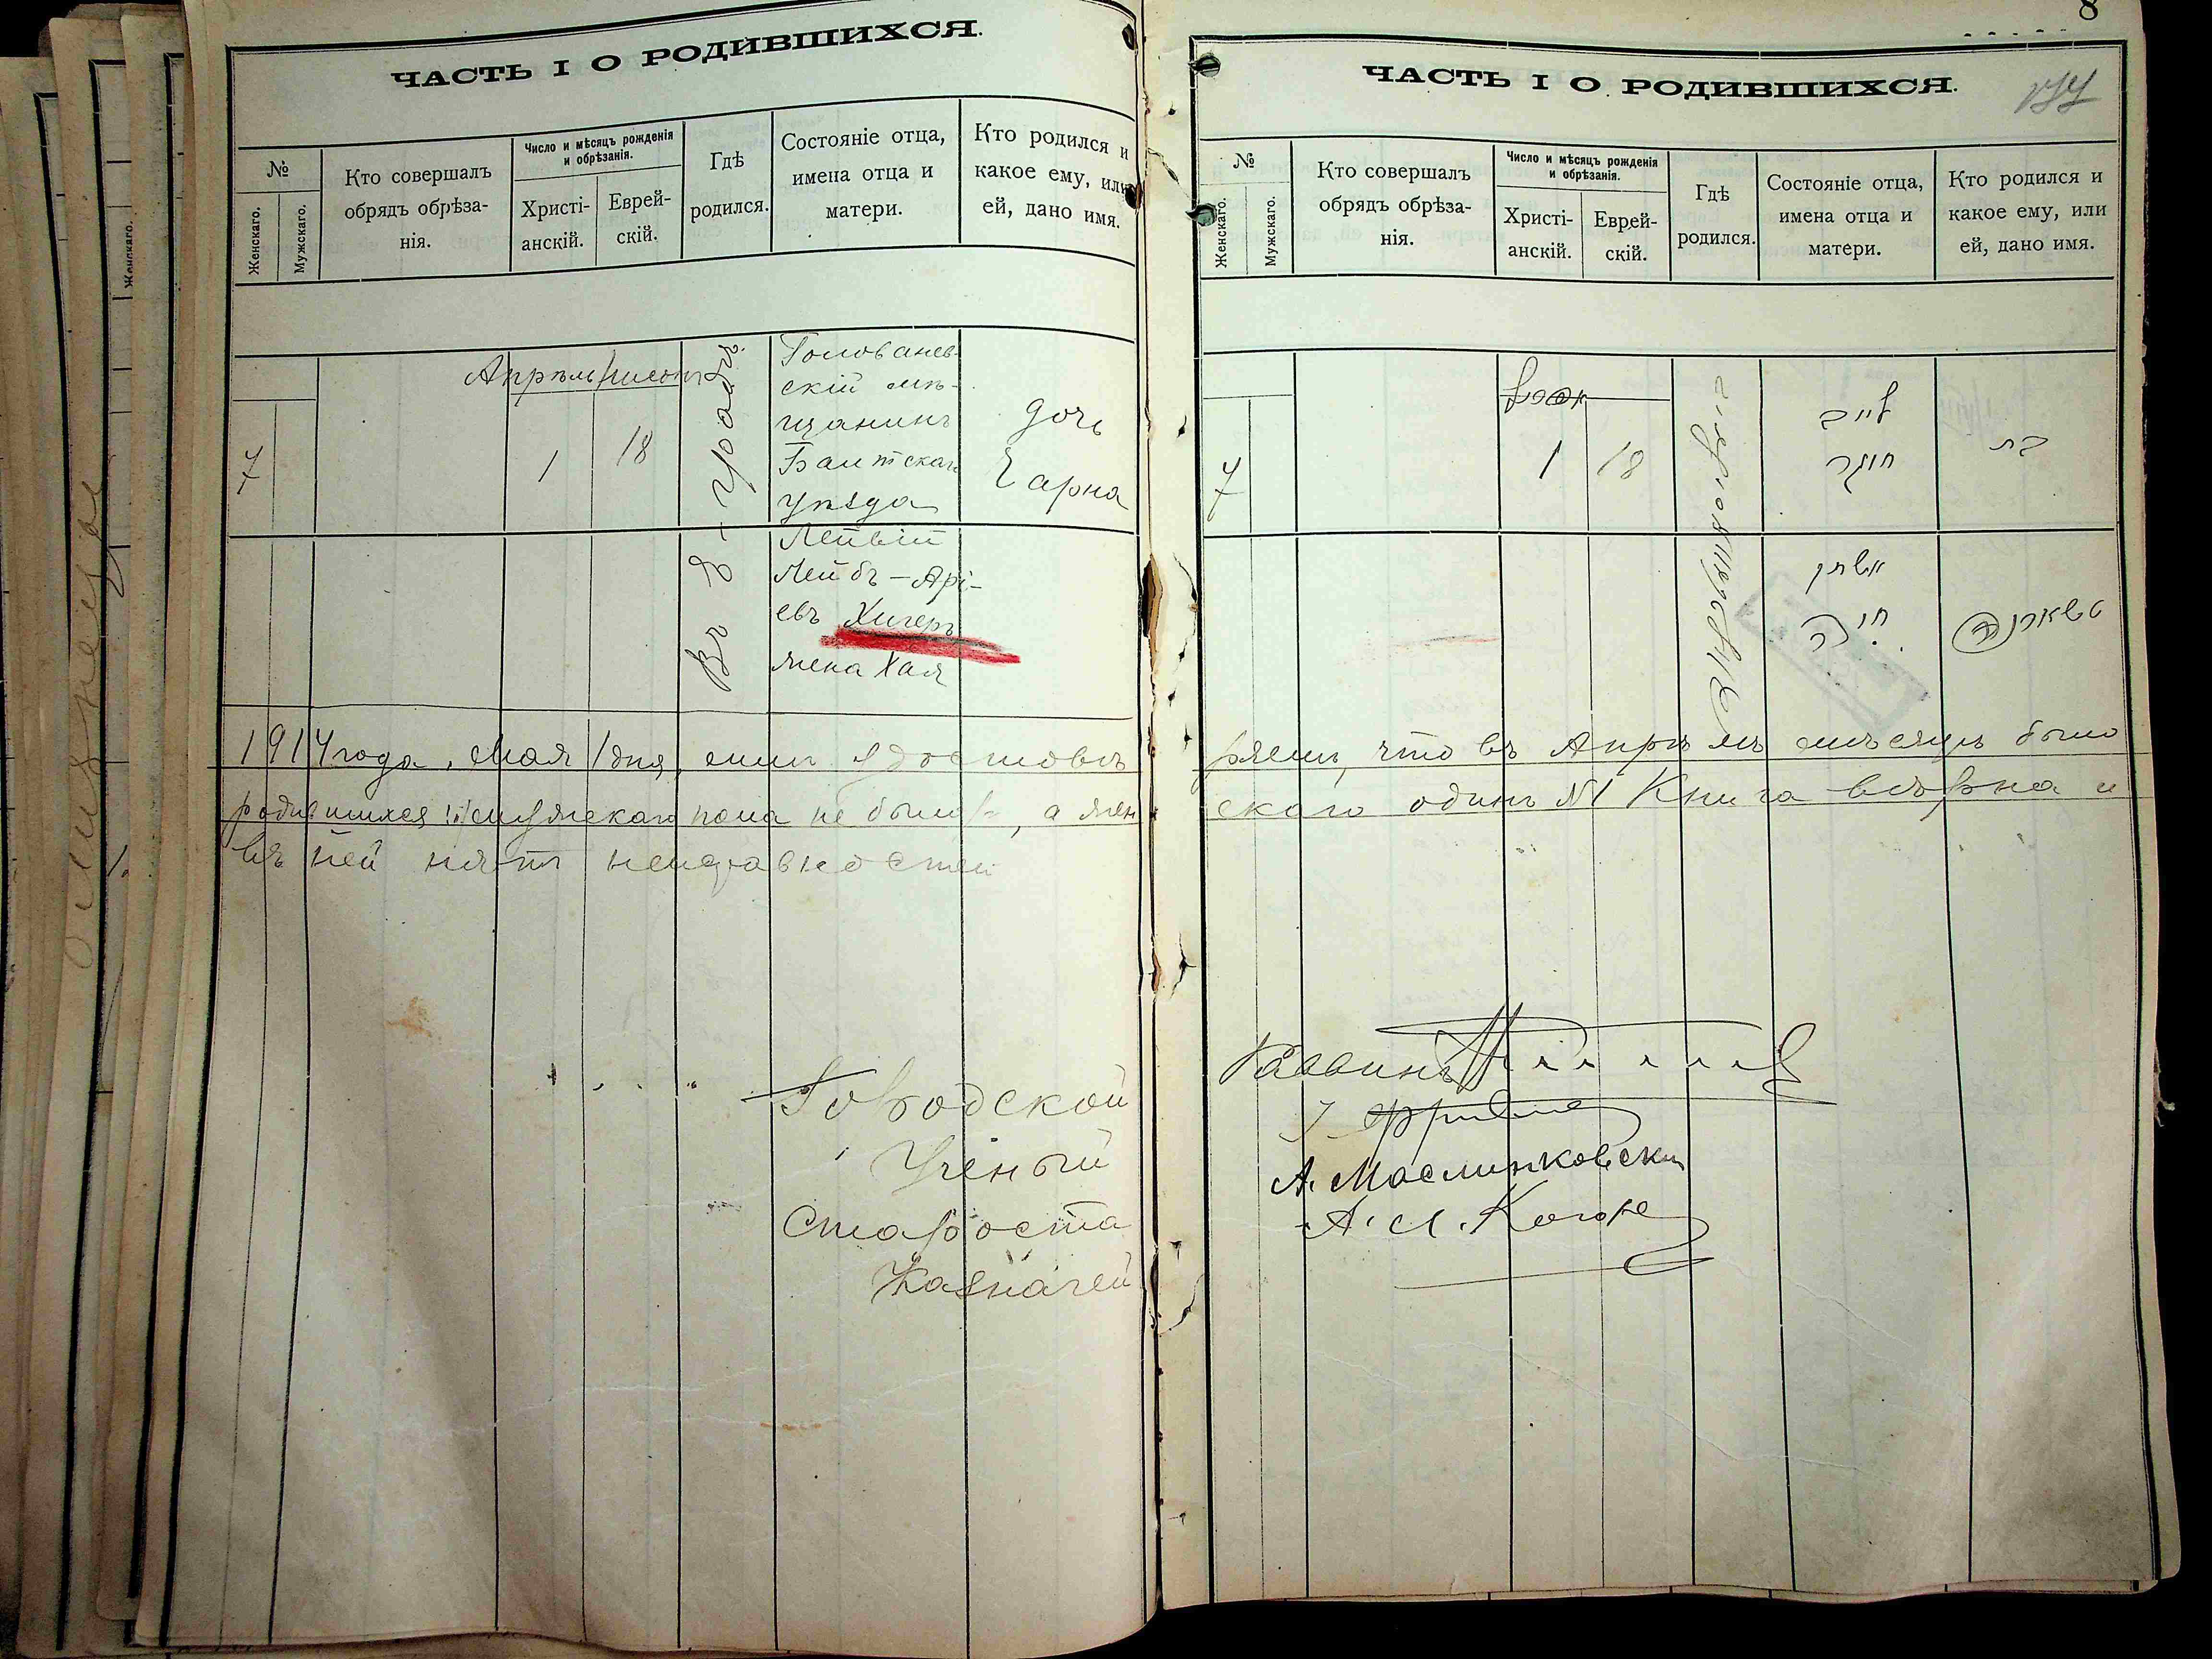 ЧАСТЬ I О РОДИВШИХСЯ.
№
Женскаго.
Мужскаго.
Кто совершалъ
обрядъ обрѣза-
нія.
Число и мѣсяцъ рожденія
и обрѣзанія.
Христі-
анскій.
Еврей-
скій.
Гдѣ
родился.
Состояніе отца,
имена отца и
матери.
Кто родился и
какое ему, или
ей, дано имя.
7
Апрѣль
1
18
Голованев-
скій мѣ-
щанинъ
Балтскаго
уѣзда
Лейвій
Лейбъ-Арі-
евъ Хигеръ
жена Хая
дочь
Чарна
1914 года, Мая 1 дня, мы удостовѣ
родившихся мужскаго пола не было, а жен
въ ней нѣтъ неисправностей
Городской
Ученый
Староста
Казначей
8
ЧАСТЬ I О РОДИВШИХСЯ.
№
Женскаго.
Мужскаго.
Кто совершалъ
обрядъ обрѣза-
нія.
Число и мѣсяцъ рожденія
и обрѣзанія.
Христі-
анскій.
Еврей-
скій.
Гдѣ
родился.
Состояніе отца,
имена отца и
матери.
Кто родился и
какое ему, или
ей, дано имя.
7
1
18
בת
ряемъ, что въ Апрѣлѣ мѣсяцѣ было
скаго одинъ №1 Книга вѣрна и
Раввинъ
А. Маслинковскій
А. Л. Коганъ